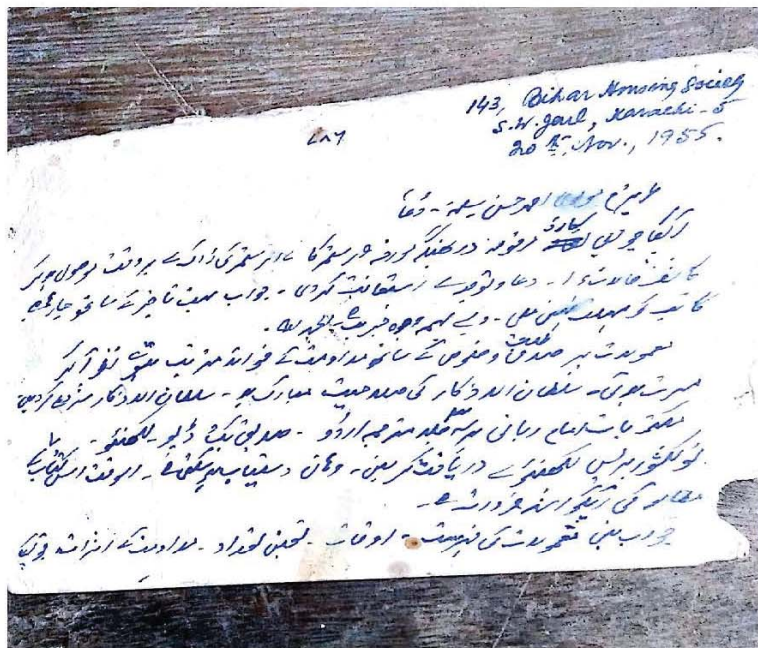 143, Bihar Housing Society
S.W. Jail, Karachi-5
20th Nov., 1955.
۷۸۶
عزیزم مولوی احمد حسن سلمہ - دعا
آپکا جوابی کارڈ مرقومہ دربھنگہ مورخہ ستمبر کا ستمبر کی ڈاک سے بروقت موصول ہو کر
کاشف حالات ہوا - دعا و توجہ سے استعانت کر دی - جواب بہت تاخیر کے ساتھ جا رہا ہے
کاتب کو مہلت نہیں ملی - ویسے بہمہ وجوہ خیریت ہے الحمد للہ -
معمولات پر صدق و خلوص کے ساتھ مداومت کے فوائد مرتب ہوتے نظر آ کر
مسرت ہوئی - سلطان الاذکار کی صلاحیت مبارک ہو - سلطان الاذکار شروع کر دیں
مکتوبات امام ربانی ہر سہ جلد مترجمہ اردو - صدیق بک ڈپو لکھنؤ - یا
نولکشور پریس لکھنؤ سے دریافت کریں - وہاں دستیاب ہو سکتی ہے - اس وقت اس کتاب کے
مطالعہ کی آپکو ضرورت ہے -
جواب میں معمولات کی فہرست - اوقات - تعین تعداد - مداومت کے اثرات